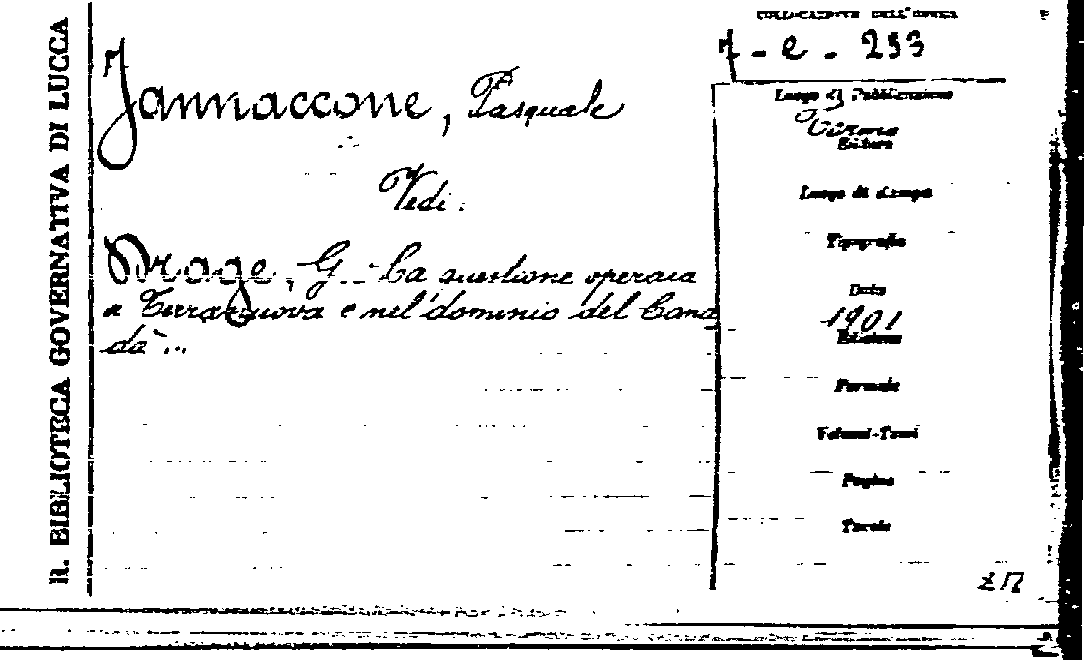 R. BIBLIOTECA GOVERNATIVA DI LUCCA
COLLOCAZIONE DELL'OPERA
7 - e - 293
Jannaccone, Pasquale
Vedi:
Drage, G. - La questione operaia
a Terranuova e nel dominio del Cana
dà...
Luogo di Pubblicazione
Editore
Luogo di stampa
Tipografia
Data
1901
Edizione
Formato
Volumi-Tomi
Pagine
Tavole